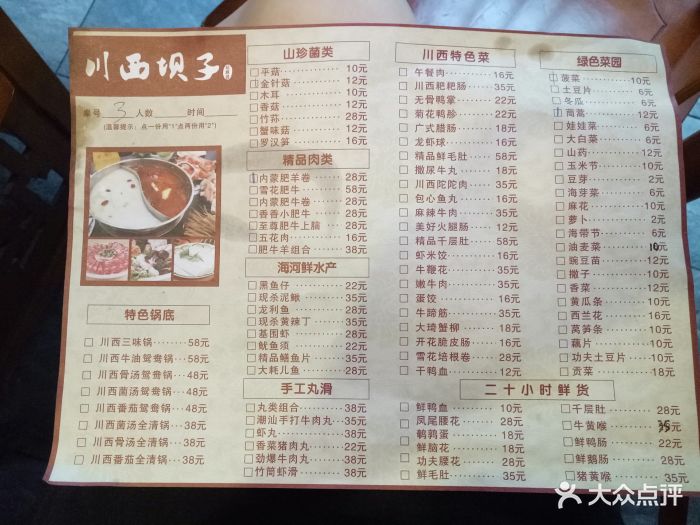 川西坝子
桌号 3 人数 时间
(温馨提示：点一份用"1"点两份用"2")
特色锅底
川西三味锅 58元
川西牛油鸳鸯锅 58元
川西骨汤鸳鸯锅 48元
川西菌汤鸳鸯锅 48元
川西番茄鸳鸯锅 48元
川西菌汤全清锅 38元
川西骨汤全清锅 38元
川西番茄全清锅 38元
山珍菌类
平菇 10元
金针菇 12元
木耳 10元
香菇 12元
竹荪 28元
蟹味菇 12元
罗汉笋 16元
精品肉类
内蒙肥羊卷 28元
雪花肥牛 58元
内蒙肥牛卷 28元
香香小肥牛 28元
至尊肥牛上脑 28元
五花肉 16元
肥牛羊组合 38元
海河鲜水产
黑鱼仔 22元
现杀泥鳅 35元
龙利鱼 28元
现杀黄辣丁 35元
基围虾 28元
鱿鱼须 22元
精品鳝鱼片 35元
大耗儿鱼 28元
手工丸滑
丸类组合 38元
潮汕手打牛肉丸 35元
虾丸 38元
香菜猪肉丸 22元
劲爆牛肉丸 35元
竹筒虾滑 38元
川西特色菜
午餐肉 16元
川西粑粑肠 35元
无骨鸭掌 22元
菊花鸭胗 22元
广式腊肠 16元
龙虾球 16元
精品鲜毛肚 35元
撒尿牛丸 18元
川西陀陀肉 35元
包心鱼丸 18元
麻辣牛肉 35元
美好火腿肠 12元
精品千层肚 28元
虾米饺 16元
牛鞭花 35元
嫩牛肉 35元
蛋饺 16元
牛蹄筋 35元
大琦蟹柳 18元
开花脆皮肠 16元
雪花培根卷 28元
干鸭血 12元
绿色菜园
菠菜 10元
土豆片 6元
冬瓜 6元
茼蒿 12元
娃娃菜 6元
大白菜 6元
山药 12元
玉米节 10元
豆芽 2元
海芽菜 6元
麻花 10元
萝卜 2元
海带节 6元
油麦菜 10元
豌豆苗 12元
撒子 10元
香菜 12元
黄瓜条 10元
西兰花 16元
莴笋条 10元
藕片 10元
功夫土豆片 10元
二十小时鲜货
鲜鸭血 10元
凤尾腰花 28元
鹌鹑蛋 18元
鲜脑花 18元
功夫腰花 28元
鲜毛肚 35元
千层肚 28元
牛黄喉 35元
鲜鸭肠 22元
鲜鹅肠 28元
猪黄喉 35元
大众点评